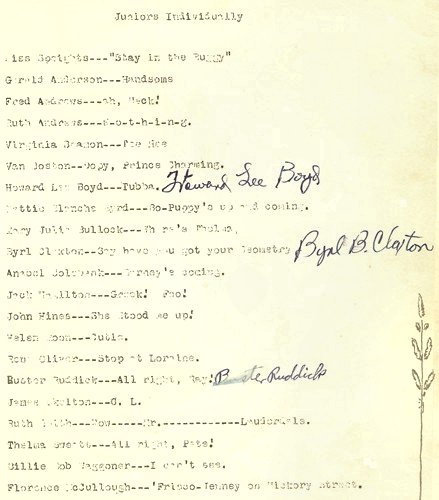 Juniors Individually
Miss Speights---"Stay in the Buggy"
Gerald Anderson---Handsome
Fred Andrews---Ah, Heck!
Ruth Andrews---N-o-t-h-i-n-g.
Virginia Beamon---
Van Boston---Dopy, Prince Charming.
Howard Lee Boyd---Tubba. Howard Lee Boyd
Blanche Byrd---So-Puppy's up and coming.
Mary Julia Bullock---There's Thelma.
Byrl Claxton--Say have you got your Geometry Byrl B. Claxton
---coming.
Jack Hamilton---Foo!
John Hines---She Stood me up!
Helen Moon---Cutie.
Oliver---Stop at Loraine.
Buster Ruddick---All right, Ray! Buster Ruddick
James Skelton---C. L.
Ruth ---Now-----Mr.------------Lauderdale.
Thelma Swett---All right, Pete!
Billie Bob Waggoner---I can't see.
Florence McCullough---'Frisco-Jenney on Hickory Street.